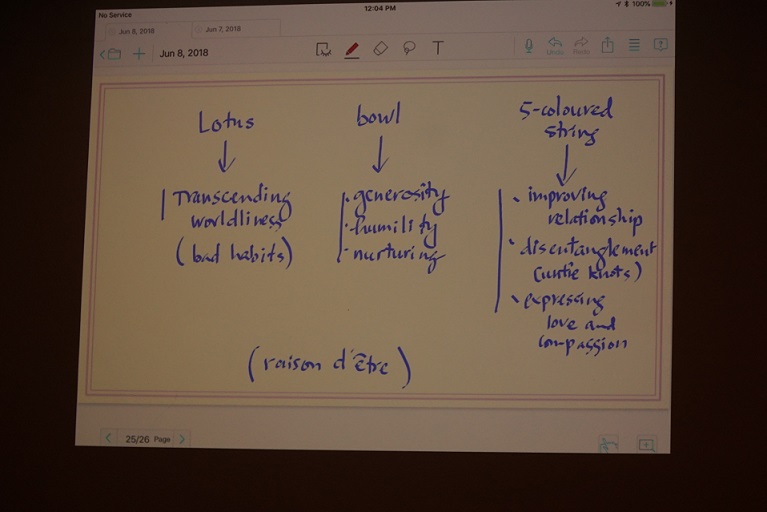 No Service
12:04 PM
100%
Jun 8, 2018
Jun 7, 2018
Jun 8, 2018
T
Undo
Redo
Lotus
Transcending
worldliness
(bad habits)
bowl
· generosity
· humility
· nurturing
5-coloured
string
· improving
relationship
· disentanglement
(untie knots)
· expressing
love and
compassion
(raison d'être)
25/26 Page